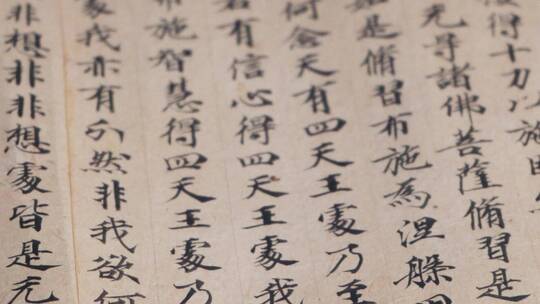 得十力以施
无㝵諸佛菩薩脩習是
是脩習布施為涅槃
何念天有四天王處乃至
若有信心得四天王處我
布施智慧得四天王處乃
處我亦有分然非我欲何
非想非非想處皆是无